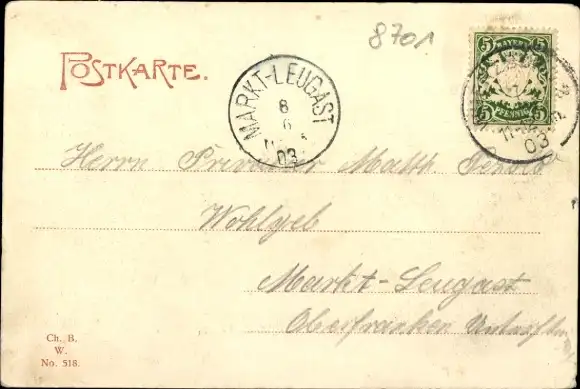 8701
POSTKARTE.
MARKT-LEUGAST
8
6
03
5 BAYERN 5
5 PFENNIG 5
03
Herrn Privatier Math
Wohlgeb
Markt-Leugast
Oberfranken
Ch. B.
W.
No. 518.